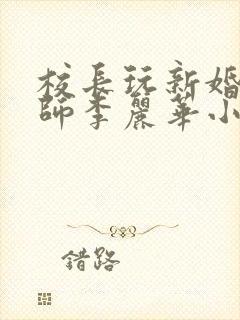 校長玩新婚
師李麗華小
錯路